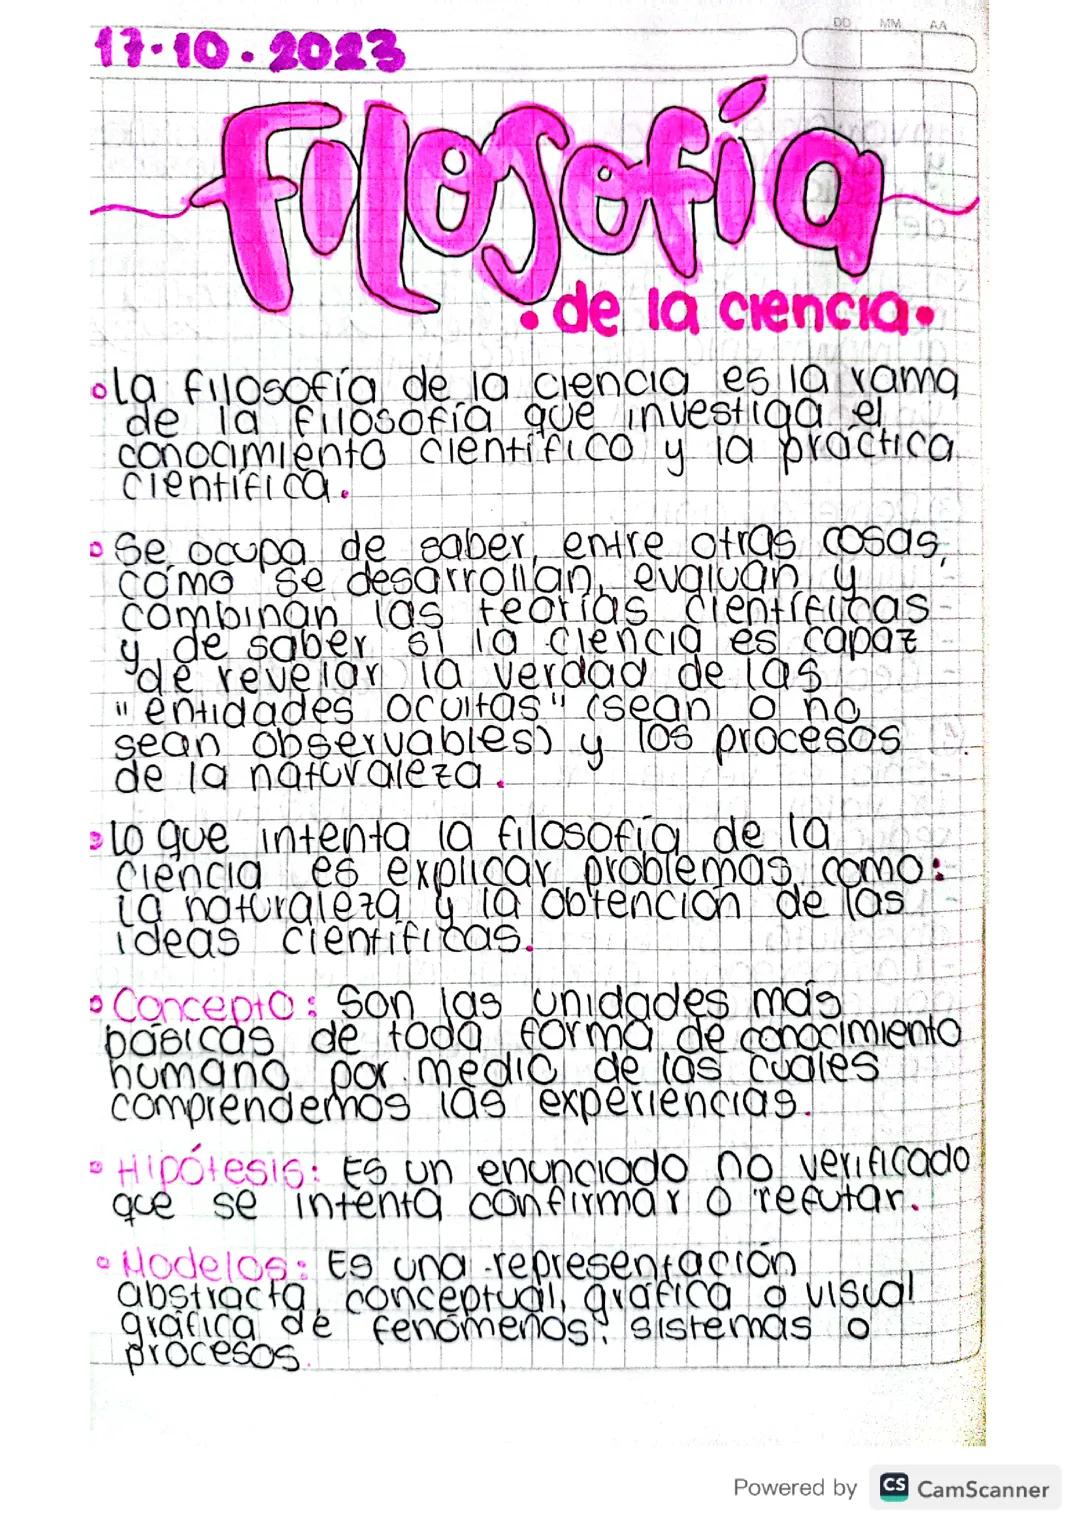 DD MM AA
17.10.2023
Filosofía
.de la ciencia.
La filosofía de la ciencia es la rama
de la filosofía que investiga el
conocimiento científico y la práctica
científica.
Se ocupa de saber, entre otras cosas,
cómo se desarrollan, evaluan y
combinan las teorías científicas
y de saber si la ciencia es capaz
de revelar la verdad de las
"entidades ocultas" (sean o no
sean observables) y los procesos
de la naturaleza.
Lo que intenta la filosofía de la
ciencia es explicar problemas como:
la naturaleza y la obtención de las
ideas científicas.
Concepto: Son las unidades más
básicas de toda forma de conocimiento
humano por medio de las cuales
comprendemos las experiencias.
Hipótesis: Es un enunciado no verificado
que se intenta confirmar o refutar.
Modelos: Es una representación
abstracta, conceptual, gráfica o visual
gráfica de fenómenos, sistemas o
procesos.
Powered by CS CamScanner